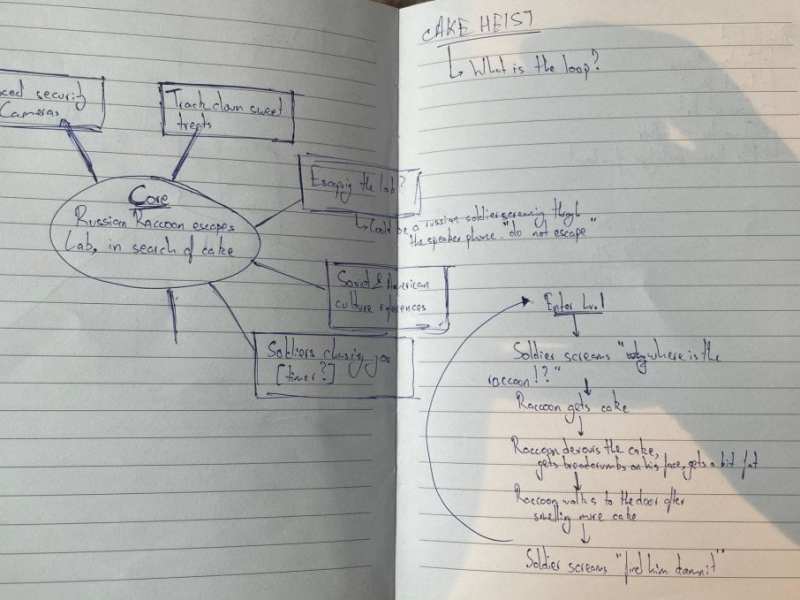 security
Cameras
Track down sweet
treats
Core
Russian Raccoon escapes
Lab, in search of cake
Escaping the lab?
↳ Could be a russian soldier screaming through
the speaker phone. "do not escape"
Soviet & American
culture references
Soldiers chasing you
[timer?]
CAKE HEIST
↳ What is the loop?
Enter Lvl 1
Soldier screams "where is the
raccoon!?"
Raccoon gets cake
Raccoon devours the cake,
gets breadcrumbs on his face, gets a bit fat
Raccoon walks to the door after
smelling more cake
Soldier screams "find him damnit"